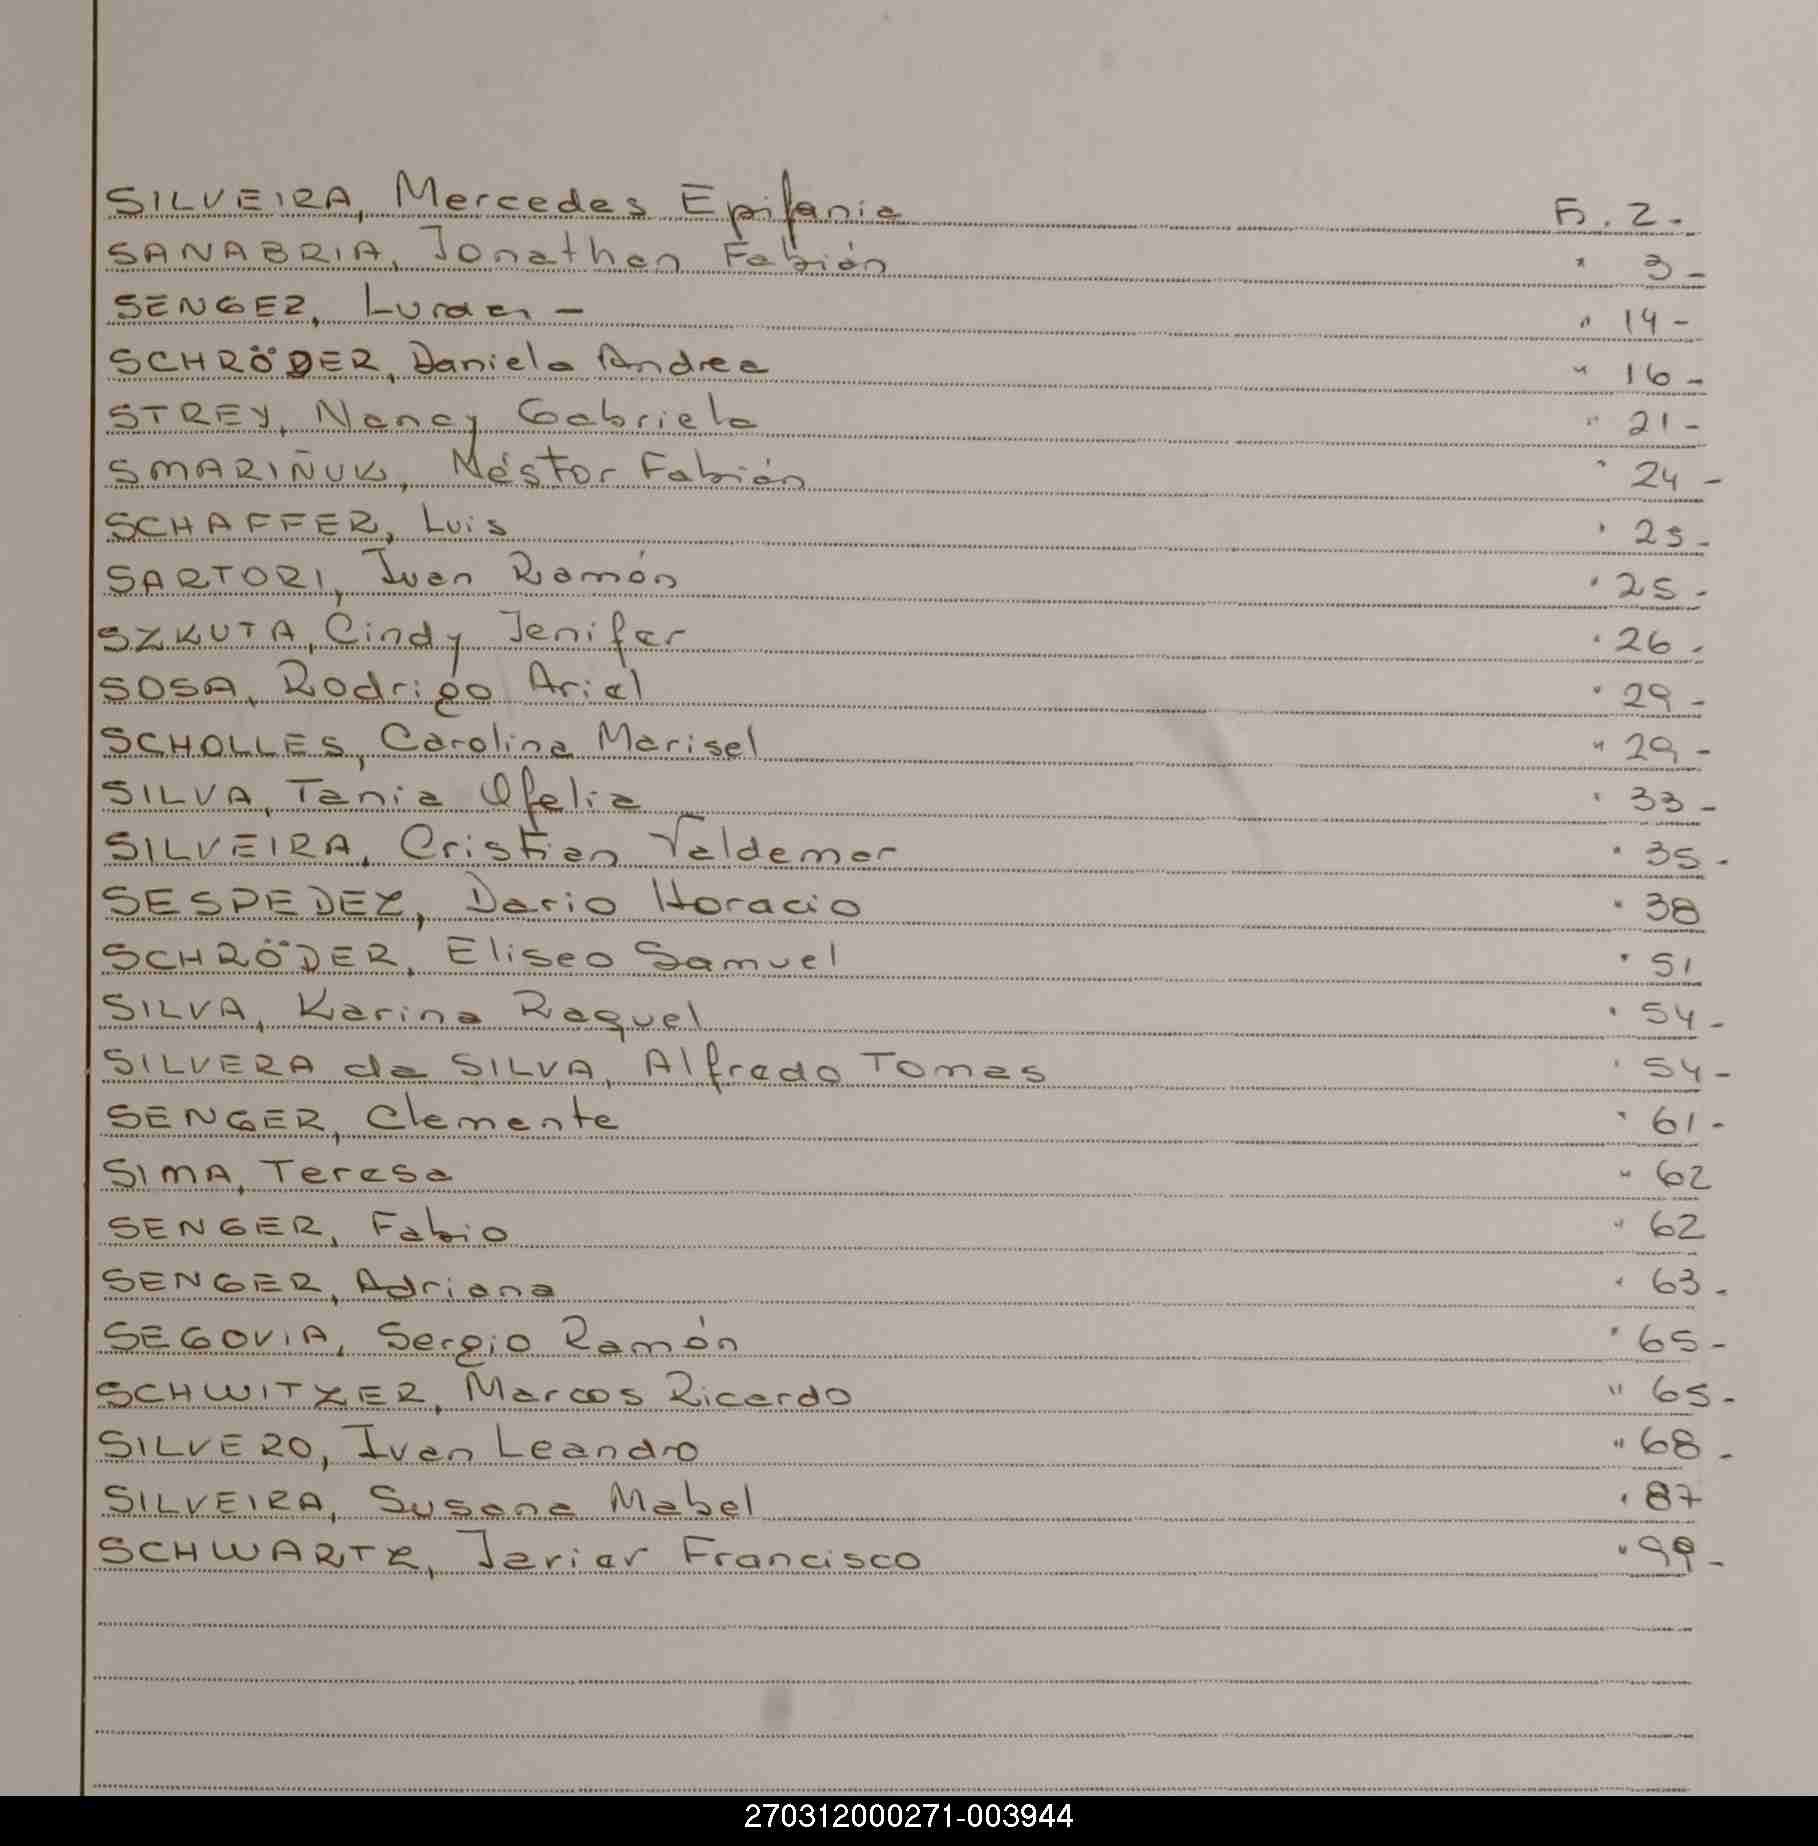 SILVEIRA, Mercedes Epifania Fs. 2-
SANABRIA, Jonathan Fabián " 3-
SENGER, " 14-
SCHRÖDER, Daniela Andrea " 16-
STREY, Nancy Gabriela " 21-
SMARIÑUK, Néstor Fabián " 24-
SCHAFFER, Luis " 25-
SARTORI, Ivan Ramón " 25-
SZKUTA, Cindy Jenifer " 26-
SOSA, Rodrigo Ariel " 29-
SCHOLLES, Carolina Marisel " 29-
SILVA, Tania Ofelia " 33-
SILVEIRA, Cristian Valdemar " 35-
SESPEDEZ, Dario Horacio " 38
SCHRÖDER, Eliseo Samuel " 51
SILVA, Karina Raquel " 54-
SILVERA da SILVA, Alfredo Tomas " 54-
SENGER, Clemente " 61-
SIMA, Teresa " 62
SENGER, Fabio " 62
SENGER, Adriana " 63-
SEGOVIA, Sergio Ramón " 65-
SCHWITZER, Marcos Ricardo " 65-
SILVERO, Ivan Leandro " 68-
SILVEIRA, Susana Mabel " 87
SCHWARTZ, Javier Francisco " 99-
270312000271-003944